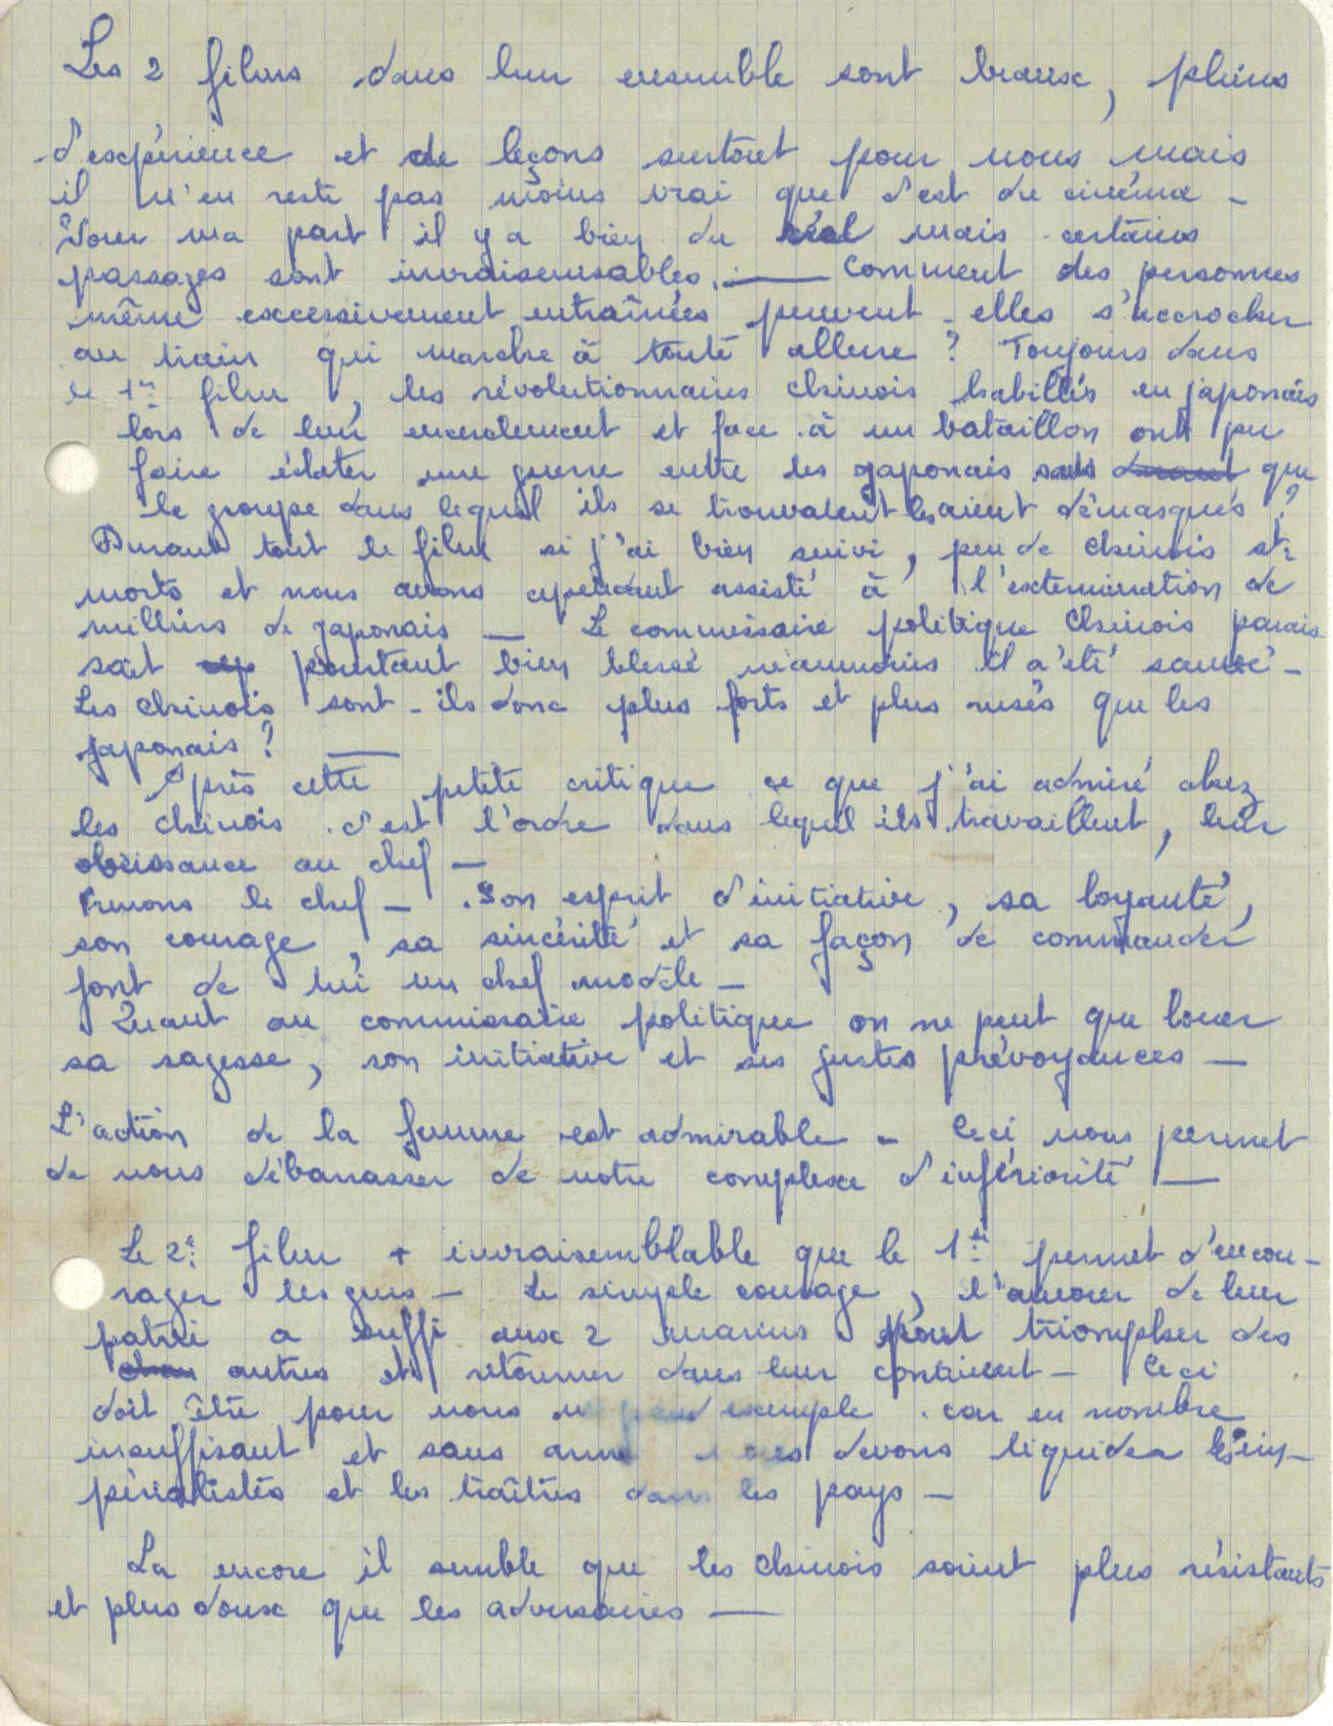 Les 2 films dans leur ensemble sont beaux, pleins
d'expérience et de leçons surtout pour nous mais
il n'en reste pas moins vrai que c'est du cinéma -
Pour ma part il y a bien du réel mais certains
passages sont invraisemsables. — Comment des personnes
même excessivement entraînées peuvent-elles s'accrocher
au train qui marche à toute allure ? Toujours dans
le 1er film, les révolutionnaires chinois habillés en japonais
lors de leur encerclement et face à un bataillon ont pu
faire éclater une guerre entre les japonais sans que
le groupe dans lequel ils se trouvaient les aient démasqués ?
Durant tout le film si j'ai bien suivi, peu de chinois st
morts et nous avons cependant assisté à l'extermination de
milliers de japonais — Le commissaire politique chinois parais
sait pourtant bien blessé néanmoins il a été sauvé -
Les chinois sont-ils donc plus forts et plus rusés que les
japonais ? —
Après cette petite critique ce que j'ai admiré chez
les chinois c'est l'ordre dans lequel ils travaillent, leur
obéissance au chef —
Prenons le chef - Son esprit d'initiative, sa loyauté,
son courage, sa sincérité et sa façon de commander
font de lui un chef modèle -
Quant au commissaire politique on ne peut que louer
sa sagesse, son initiative et ses justes prévoyances —
L'action de la femme est admirable - Ceci nous permet
de nous débarrasser de notre complexe d'infériorité —
Le 2e film + invraisemblable que le 1er permet d'encou-
rager les gens - Le simple courage, l'amour de leur
patrie a suffi aux 2 marins pour triompher des
autres et retourner dans leur continent - Ceci
doit être pour nous un grand exemple car en nombre
insuffisant et sans arme nous devons liquider les im-
périalistes et les traîtres dans les pays -
La encore il semble que les chinois soient plus résistants
et plus doux que les adversaires —